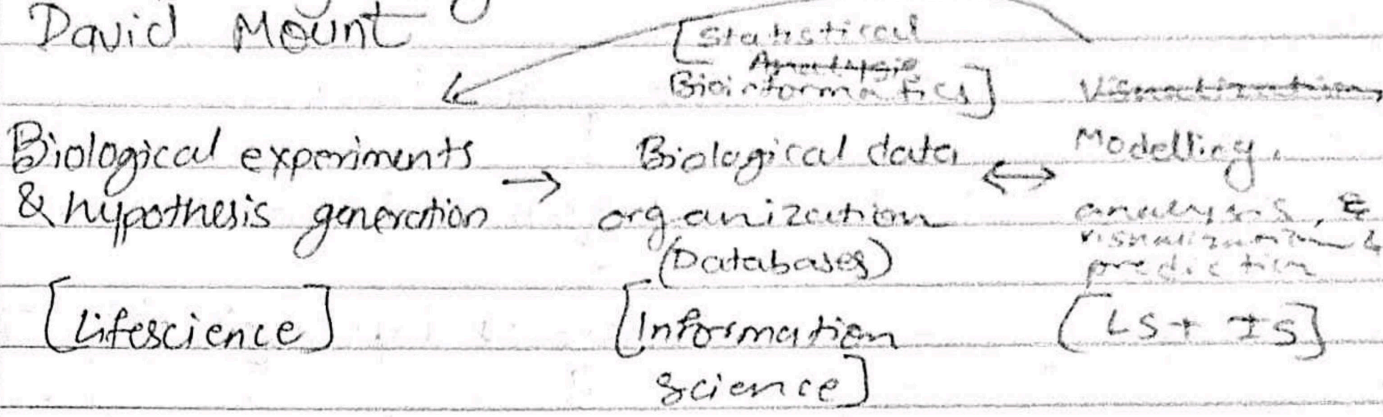 David Mount
[Statistical
Analysis
Bioinformatics]
Visualization,
Biological experiments
& hypothesis generation
→
Biological data
organization
(Databases)
↔
Modelling,
analysis, &
visualization &
prediction
[Lifescience]
[Information
science]
[LS + IS]